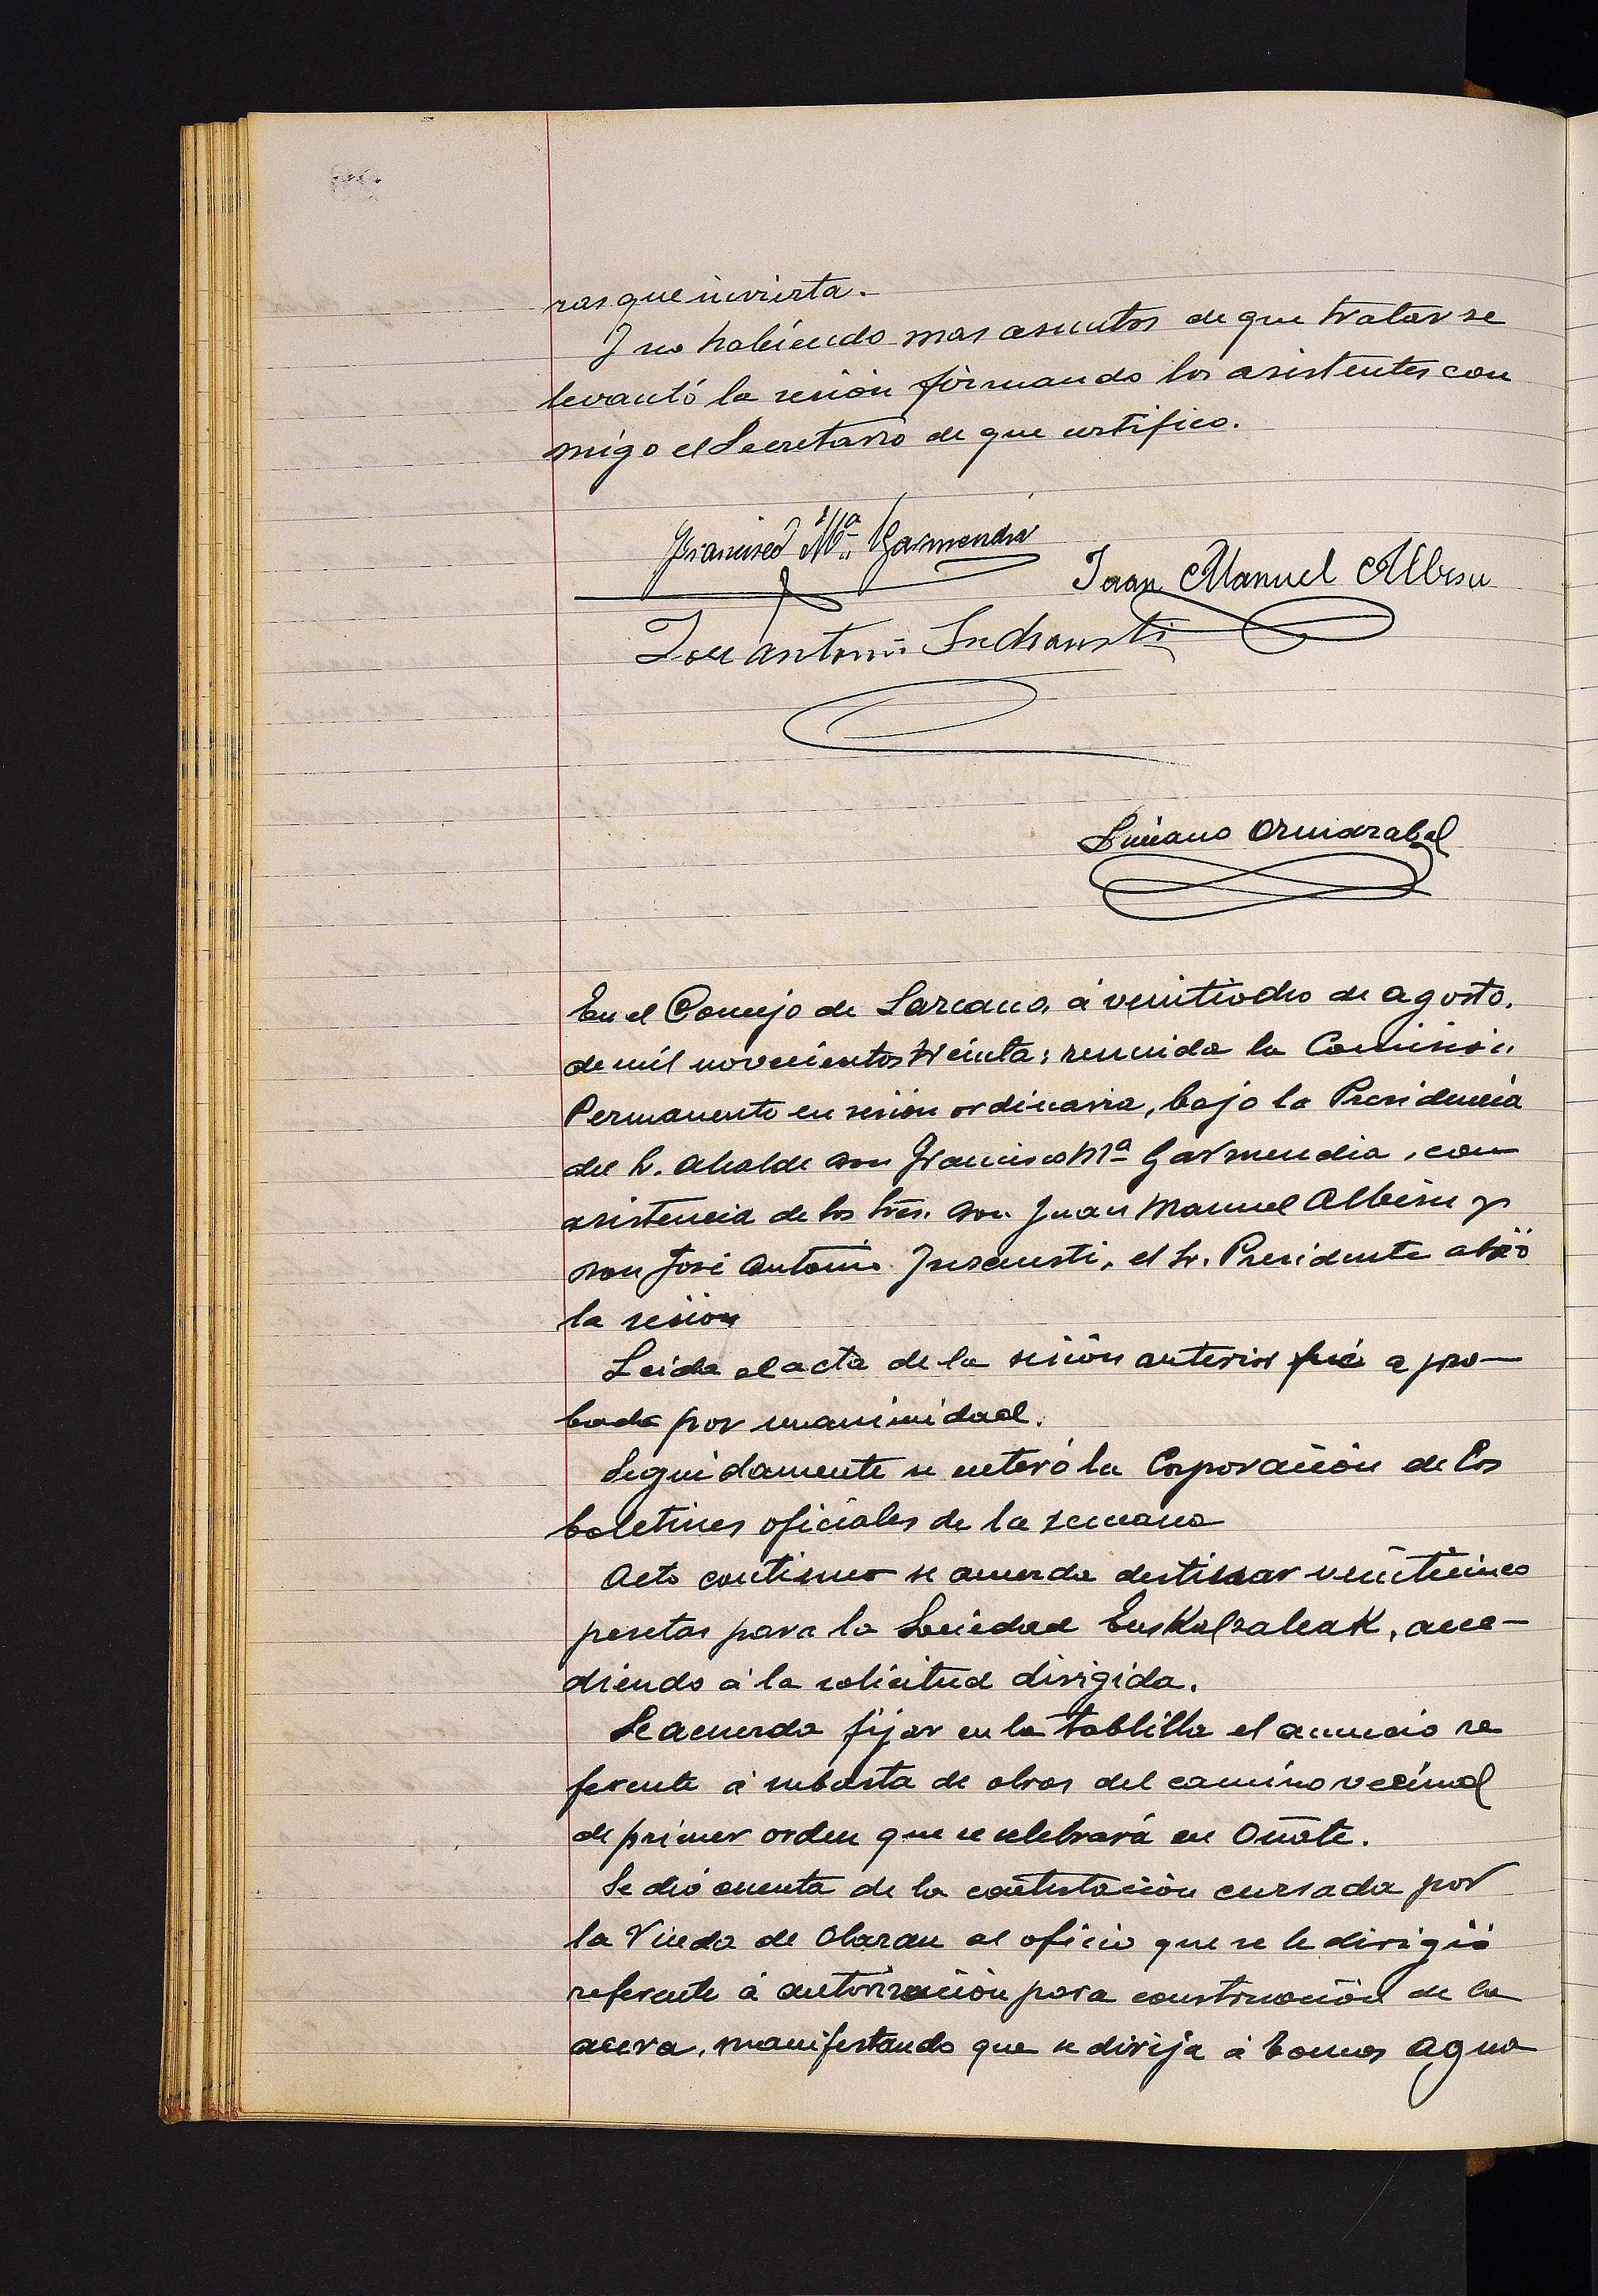 ras que invierta.
Y no habiendo mas asuntos de que tratar se
levantó la sesión firmando los asistentes con
migo el Secretario de que certifico.
Francisco Mª Garmendia
Juan Manuel Albisu
José Antonio Inchausti
Luciano Ormazabal
En el Concejo de Lazcano, á veintiocho de agosto,
de mil novecientos treinta; reunida la Comisión
Permanente en sesión ordinaria, bajo la Presidencia
del Sr. Alcalde don Francisco Mª Garmendia, con
asistencia de los Sres. don Juan Manuel Albisu y
don José Antonio Inchausti, el Sr. Presidente abrió
la sesión
Leida el acta de la sesión anterior fué apro-
bada por unanimidad.
Seguidamente se enteró la Corporación de los
boletines oficiales de la semana
Acto continuo se acuerda destinar veinticinco
pesetas para la Sociedad Euskalzaleak, acce-
diendo á la solicitud dirigida.
Se acuerda fijar en la tablilla el anuncio re
ferente á subasta de obras del camino vecinal
de primer orden que se celebrará en Oñate.
Se dió cuenta de la contestación cursada por
la Viuda de Olaran al oficio que se le dirigió
referente á autorización para construcción de la
acera, manifestando que se dirija á